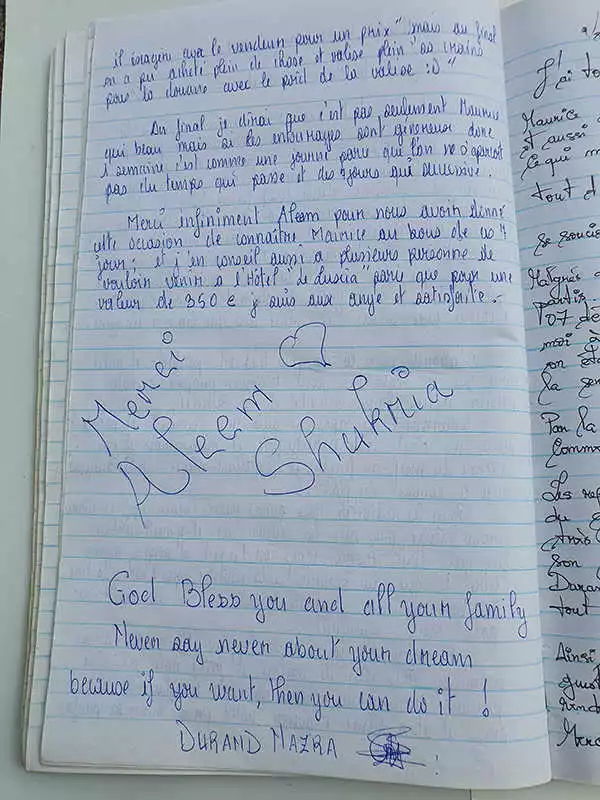 il imagine que le vendeur pour un prix" mais au final
on a pu acheté plein de chose et valise plein "as crains
pour la douane avec le poid de la valise :D"
Au final je dirai que c'est pas seulement Maurice
qui beau mais a les entourages sont généreux donc
1 semaine c'est comme une journé parce que l'on ne s'aperçoit
pas du temps qui passe et des jours qui
Merci infiniment Aleam pour nous avoir donné
cette occasion de connaître Maurice au bous de ce 7
jour: et j'en conseil aussi a plusieurs personne de
vouloir venir a l'Hôtel "de Luscia" parce que pour une
valeur de 350 € je suis aux ange et satisfaite.-
Merci
Aleam
Shukria
God Bless you and all your family
Never say never about your dream
because if you want, then you can do it !
DURAND NAZRA
J'ai tou
Maurice
et aussi
ce qui m
tout d
se souci
Malgrés
partis
07 de
moi à
son éta
la ser
Par la
Comm
Les rep
du
trois
son
Duran
tout
Ainsi
just
rend
Merc